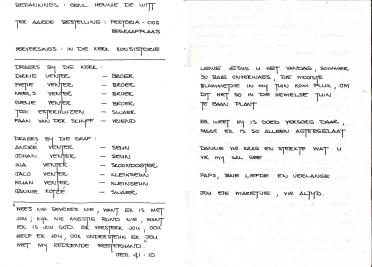 BEDANKINGS : GENL HENNIE DE WITT
TER AARDE BESTELLING : PRETORIA - OOS
BEGRAAFPLAAS
VERVERSINGS : IN DIE KERK KONSISTORIE
DRAERS BY DIE KERK :
DIRKIE VENTER - BROER
PIETER VENTER - BROER
NEELS VENTER - BROER
GERRIE VENTER - BROER
TOOI ESTERHUIZEN - SWAER
FAAN VAN DER SCHYFF - VRIEND
DRAERS BY DIE GRAF :
ANDRÉ VENTER - SEUN
JOHAN VENTER - SEUN
INA VENTER - SKOONDOGTER
JACO VENTER - KLEINSEUN
RUAN VENTER - KLEINSEUN
DANNIE KOTZE - SWAER
"WEES NIE BEVREES NIE, WANT EK IS MET
JOU ; KYK NIE ANGSTIG ROND NIE, WANT
EK IS JOU GOD. EK VERSTERK JOU, OOK
HELP EK JOU, OOK ONDERSTEUN EK JOU
MET MY REDDENDE REGTERHAND."
JES. 41 : 10
LIEWE JESUS U HET VANDAG, SOMMER
SO BAIE ONVERWAGS, DIE MOOISTE
BLOMMETJIE IN MY TUIN KOM PLUK, OM
DIT NET SO IN DIE HEMELSE TUIN
TE GAAN PLANT
EK WEET HY IS GOED VERSORG DAAR,
MAAR EK IS SO ALLEEN AGTERGELAAT
DANKIE VIR KRAG EN STERKTE WAT U
VIR MY SAL GEE
PAPS, BAIE LIEFDE EN VERLANGE
JOU EIE MARIETJIE, VIR ALTYD.